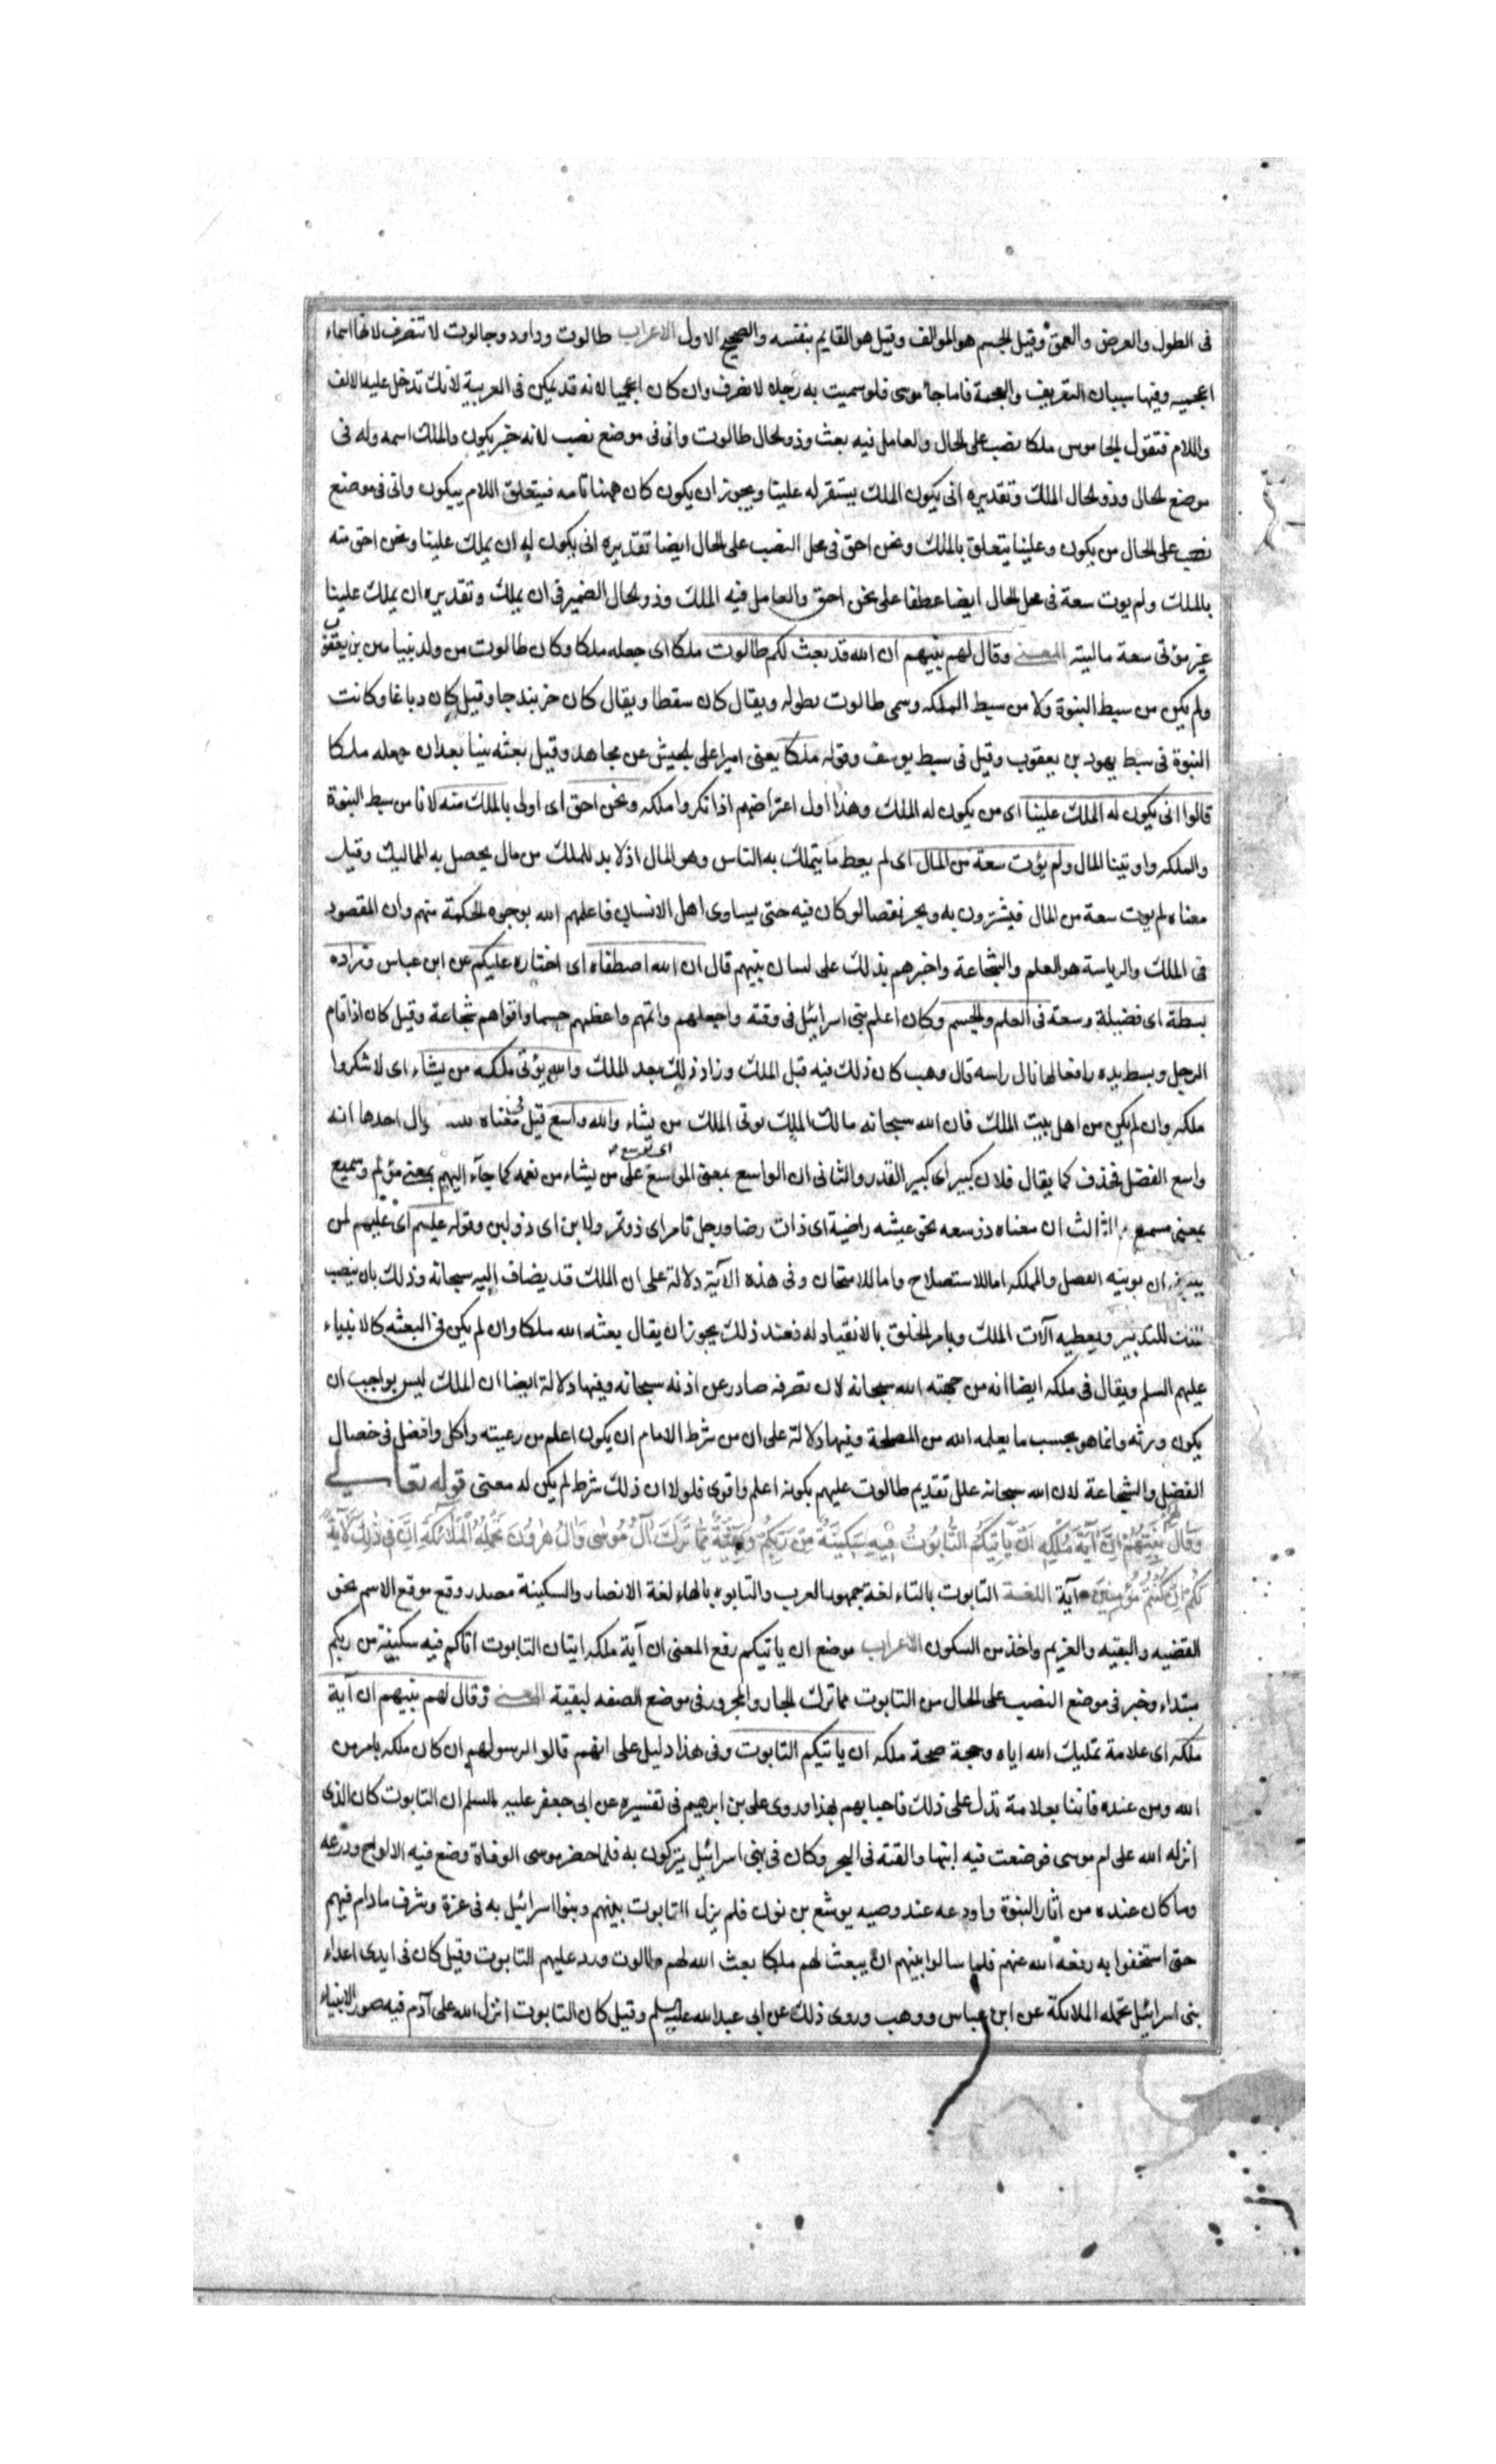 فى الطول والعرض والعمق وقيل الجسم هو المؤلف وقيل هو القايم بنفسه والصحيح الاول الاعراب طالوت وداود وجالوت لا تنصرف لانها اسماء
اعجميه وفيها سببان التعريف والعجمة فاما جاموس فلو سميت به رجلا لانصرف وان كان اعجميا لانه قد تمكن فى العربية لانك تدخل عليه الالف
واللام فتقول الجاموس ملكا نصب على الحال والعامل فيه بعث وذو الحال طالوت وانى فى موضع نصب لانه خبر يكون والملك اسمه وله فى
موضع الحال وذو الحال الملك وتقديره انى يكون الملك يستقر له علينا ويجوز ان يكون كان ههنا تامه فيتعلق اللام بيكون وانى فى موضع
نصب على الحال من يكون وعلينا يتعلق بالملك ونحن احق فى محل النصب على الحال ايضا تقديره انى يكون له ان يملك علينا ونحن احق منه
بالملك ولم يوت سعة فى محل الحال ايضا عطفا على نحن احق والعامل فيه الملك وذو الحال الضمير فى ان يملك وتقديره ان يملك علينا
غير موتى سعة ماليته المعنى وقال لهم نبيهم ان الله قد بعث لكم طالوت ملكا اى جعله ملكا وكان طالوت من ولد بنيامين بن يعقوب
ولم يكن من سبط النبوة ولا من سبط المملكه وسمى طالوت لطوله ويقال كان سقطا ويقال كان خربندجا وقيل كان دباغا وكانت
النبوة فى سبط يهود بن يعقوب وقيل فى سبط يوسف وقوله ملكا يعنى اميرا على الجيش عن مجاهد وقيل بعثه نبيا بعد ان جعله ملكا
قالوا انى يكون له الملك علينا اى من يكون له الملك وهذا اول اعتراضهم اذ انكروا ملكه ونحن احق اى اولى بالملك منه لانا من سبط النبوة
والمملكه واوتينا المال ولم يؤت سعة من المال اى لم يعط ما يتملك به الناس وهو المال اذ لا بد للملك من مال يحصل به المماليك وقيل
معناه لم يوت سعة من المال فيشرف به ويجبر نقصا لو كان فيه حتى يساوى اهل الانساب فاعلمهم الله بوجوه الحكمة منهم وان المقصود
فى الملك والرياسة هو العلم والشجاعة واخبرهم بذلك على لسان نبيهم قال ان الله اصطفاه اى اختاره عليكم عن ابن عباس وزاده
بسطة اى فضيلة وسعة فى العلم والجسم وكان اعلم بنى اسرائيل فى وقته واجملهم واتمهم واعظمهم جسما واقواهم شجاعة وقيل كان اذا قام
الرجل وبسط يده رافعا لها نال راسه قال وهب كان ذلك فيه قبل الملك وزاد ذلك بعد الملك والله يؤتى ملكه من يشاء اى لا تنكروا
ملكه وان لم يكن من اهل بيت الملك فان الله سبحانه مالك الملك يوتى الملك من يشاء والله واسع قيل فى معناه احدها انه
واسع الفضل فحذف كما يقال فلان كبير اى كبير القدر والثانى ان الواسع بمعنى الموسع اى يوسع على من يشاء من نعمه كما جآء اليهم بمعنى مؤلم وسميع
بمعنى مسمع والثالث ان معناه ذو سعه نحو عيشه راضية اى ذات رضا ورجل تامر اى ذو تمر ولابن اى ذو لبن وقوله عليم اى عليهم لمن
ان يوتيه الفضل والمملكه اما للاستصلاح واما للامتحان وفى هذه الآية دلالة على ان الملك قد يضاف اليه سبحانه وذلك بان ينصب
للتدبير ويعطيه آلات الملك ويامر الخلق بالانقياد له فعند ذلك يجوز ان يقال بعثه الله ملكا وان لم يكن فى البعثه كالانبياء
عليهم السلم ويقال فى ملكه ايضا انه من جهته الله سبحانه لان تصرفه صادر عن اذنه سبحانه وفيها دلالة ايضا ان الملك ليس بواجب ان
يكون ورثه وانما هو بحسب ما يعلمه الله من المصلحة وفيها دلالة على ان من شرط الامام ان يكون اعلم من رعيته واكمل وافضل فى خصال
الفضل والشجاعة لان الله سبحانه علل تقديم طالوت عليهم بكونه اعلم واقوى فلولا ان ذلك شرط لم يكن له معنى قوله تعالى
وَقَالَ لَهُمْ نَبِيُّهُمْ اِنَّ آيَةَ مُلْكِهِ اَنْ يَأْتِيَكُمُ التَّابُوتُ فِيهِ سَكِينَةٌ مِنْ رَبِّكُمْ وَبَقِيَّةٌ مِمَّا تَرَكَ آلُ مُوسَى وَآلُ هٰرُونَ تَحْمِلُهُ الْمَلَائِكَةُ اِنَّ فِى ذٰلِكَ لَآيَةً
لَكُمْ اِنْ كُنْتُمْ مُؤْمِنِينَ آية اللغة التابوت بالتاء لغة جمهور العرب والتابوه بالهاء لغة الانصار والسكينة مصدر وقع موقع الاسم نحو
القضيه والبقيه والعزيم واخذ من السكون الاعراب موضع ان ياتيكم رفع المعنى ان آية ملكه ايتان التابوت اتاكم فيه سكينة من ربكم
مبتداء وخبر فى موضع النصب على الحال من التابوت مما ترك الجار والمجرور فى موضع الصفه لبقية المعنى وقال لهم نبيهم ان آية
ملكه اى علامة تمليك الله اياه وحجة صحة ملكه ان ياتيكم التابوت وفى هذا دليل على انهم قالوا لرسولهم ان كان ملكه بامر من
الله ومن عنده فاتنا بعلامة تدل على ذلك فاجابهم بهذا وروى على بن ابرهيم فى تفسيره عن ابى جعفر عليه السلم ان التابوت كان الذى
انزله الله على ام موسى فوضعت فيه ابنها والقته فى البحر وكان فى بنى اسرائيل يتبركون به فلما حضر موسى الوفاة وضع فيه الالواح ودرعه
وما كان عنده من آثار النبوة واودعه عند وصيه يوشع بن نون فلم يزل التابوت بينهم وبنوا اسرائيل به فى عزة وشرف مادام فيهم
حتى استخفوا به رفعه الله عنهم فلما سالوا نبيهم ان يبعث لهم ملكا بعث الله لهم طالوت ورد عليهم التابوت وقيل كان فى ايدى اعداء
بنى اسرائيل تحمله الملائكة عن ابن عباس ووهب وروى ذلك عن ابى عبدالله عليه السلم وقيل كان التابوت انزل الله على آدم فيه صور الانبياء